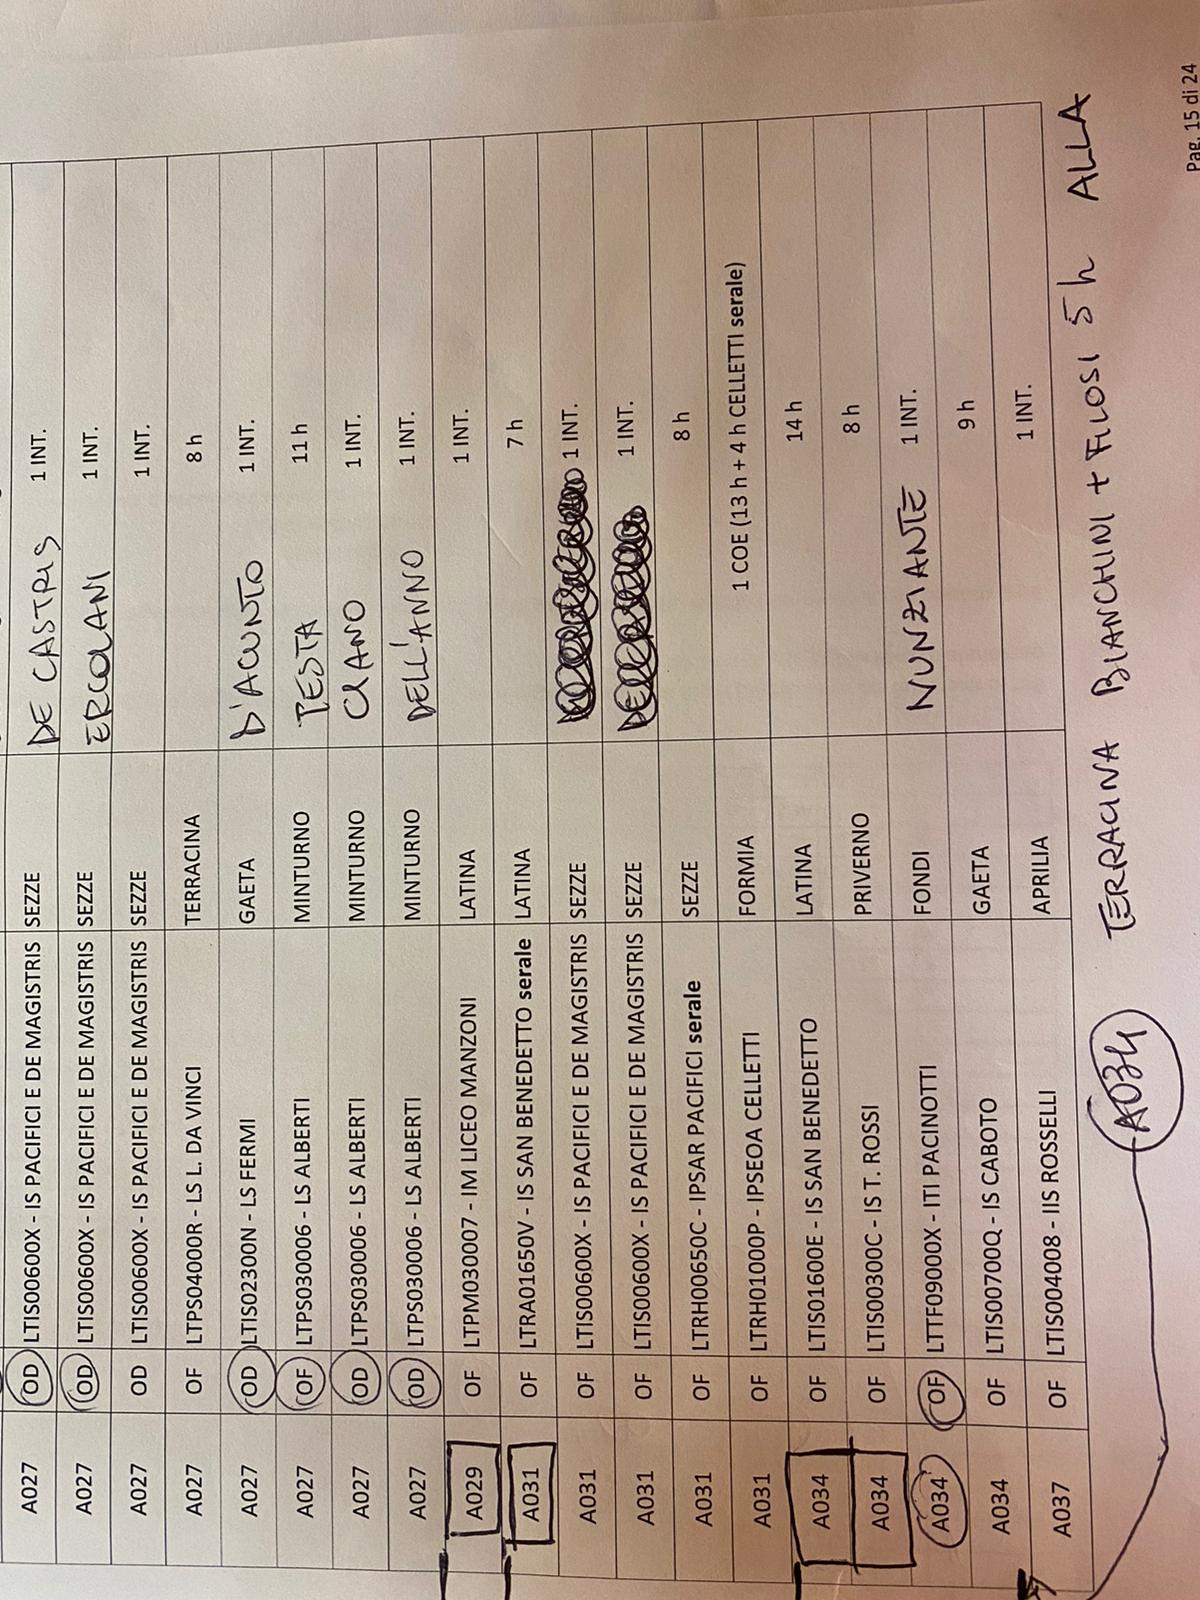 A027 OD LTIS00600X - IS PACIFICI E DE MAGISTRIS SEZZE DE CASTRIS 1 INT.
A027 OD LTIS00600X - IS PACIFICI E DE MAGISTRIS SEZZE ERCOLANI 1 INT.
A027 OD LTIS00600X - IS PACIFICI E DE MAGISTRIS SEZZE 1 INT.
A027 OF LTPS04000R - LS L. DA VINCI TERRACINA 8 h
A027 OD LTIS02300N - LS FERMI GAETA D'ACUNTO 1 INT.
A027 OF LTPS030006 - LS ALBERTI MINTURNO TESTA 11 h
A027 OD LTPS030006 - LS ALBERTI MINTURNO CIANO 1 INT.
A027 OD LTPS030006 - LS ALBERTI MINTURNO DELL'ANNO 1 INT.
A029 OF LTPM030007 - IM LICEO MANZONI LATINA 1 INT.
A031 OF LTRA01650V - IS SAN BENEDETTO serale LATINA 7 h
A031 OF LTIS00600X - IS PACIFICI E DE MAGISTRIS SEZZE 1 INT.
A031 OF LTIS00600X - IS PACIFICI E DE MAGISTRIS SEZZE 1 INT.
A031 OF LTRH00650C - IPSAR PACIFICI serale SEZZE 8 h
A031 OF LTRH01000P - IPSEOA CELLETTI FORMIA 1 COE (13 h + 4 h CELLETTI serale)
A034 OF LTIS01600E - IS SAN BENEDETTO LATINA 14 h
A034 OF LTIS00300C - IS T. ROSSI PRIVERNO 8 h
A034 OF LTTF09000X - ITI PACINOTTI FONDI NUNZIANTE 1 INT.
A034 OF LTIS00700Q - IS CABOTO GAETA 9 h
A037 OF LTIS004008 - IIS ROSSELLI APRILIA 1 INT.
A034 TERRACINA BIANCHINI + FILOSI 5 h ALLA
Pag. 15 di 24